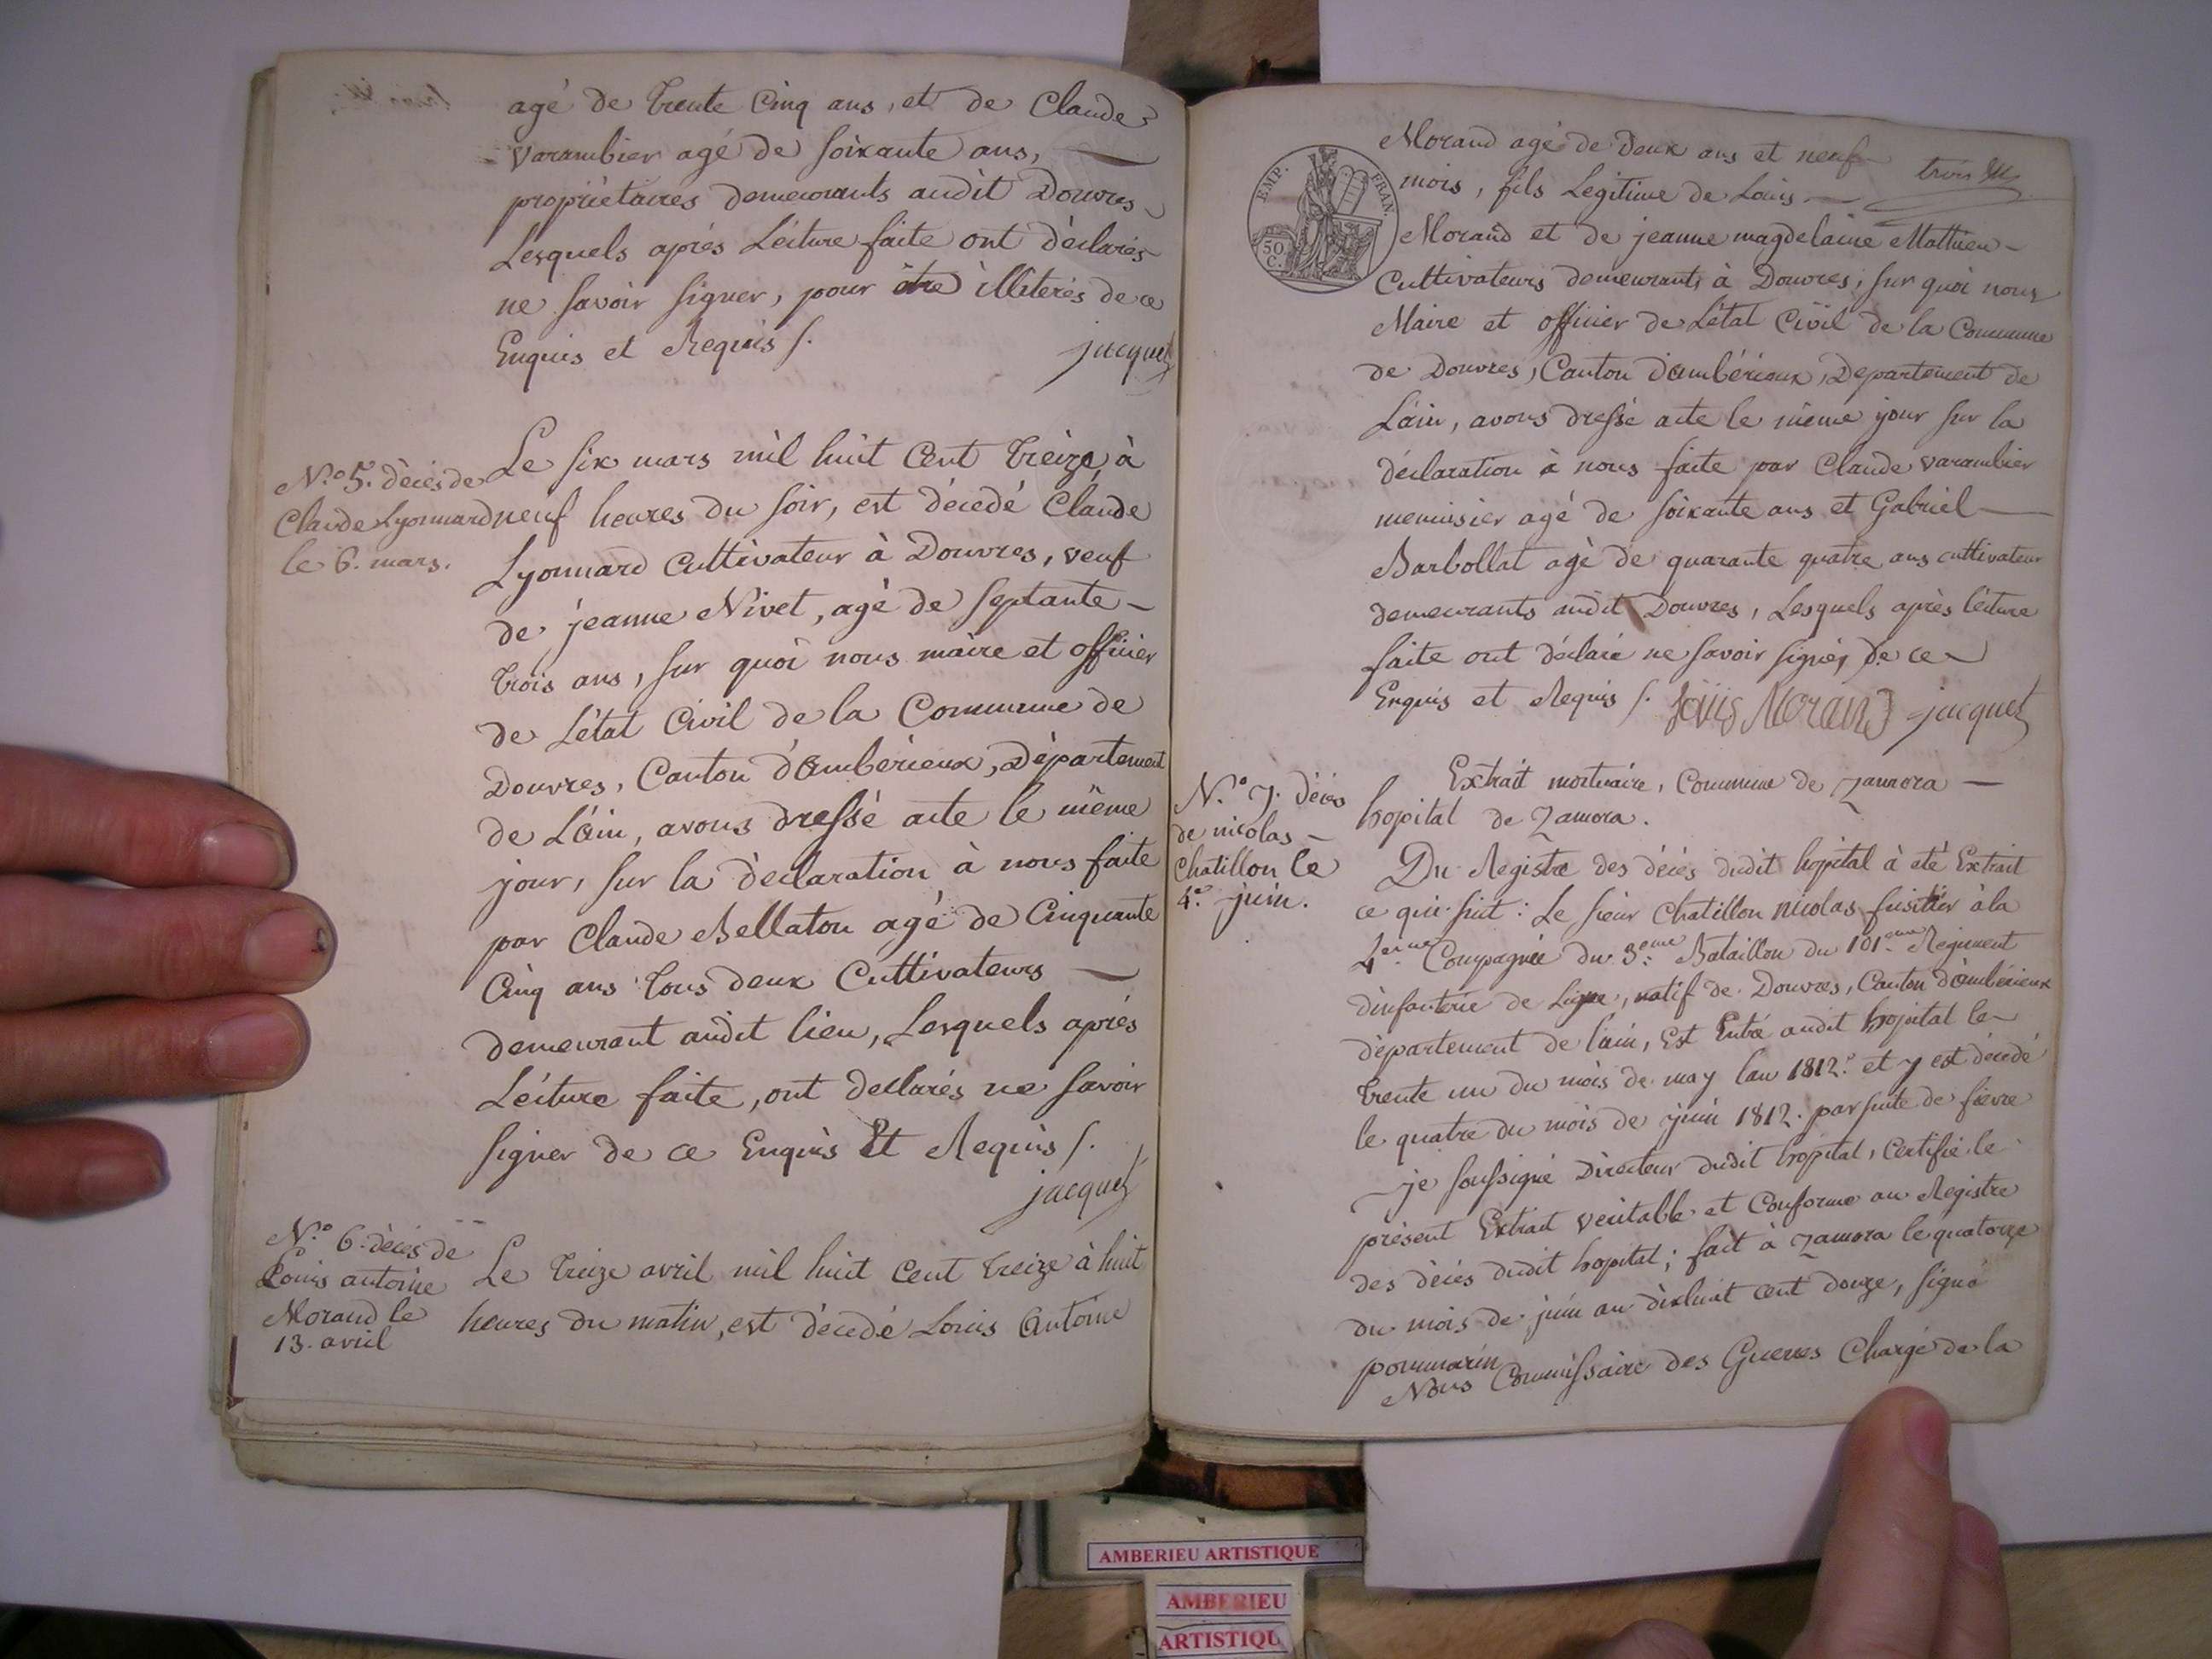 agé de trente Cinq ans, et de Claude
varambier agé de soixante ans,
propriètaires demeurants audit Douvres
Lesquels aprés Léiture faite ont dèclarés
ne savoir signer, pour être illiterés de ce
Enquis et Requis /.
jacquet
N.o 5. dèiés de
Claude Lyonnard
le 6. mars.
Le six mars mil huit Cent treize à
neuf heures du soir, est décedé Claude
Lyonnard Cultivateur à Douvres, veuf
de jeanne Nivet, agé de septante-
trois ans, sur quoi nous maire et officier
de L'état Civil de la Commune de
Douvres, Canton d'ambérieux, Département
de L'ain, avons dressé acte le même
jour, sur la dèclaration à nous faite
par Claude Bellaton agé de Cinquante
Cinq ans tous deux Cultivateurs
demeurant audit lieu, Lesquels aprés
Léiture faite, ont declarés ne savoir
signer de ce Enquis Et Requis /.
jacquet
N.o 6. dèiés de
Louis antoine
Morand le
13. avril
Le treize avril mil huit Cent treize à huit
heures du matin, est décedé Louis Antoine
trois
EMP. FRAN.
50 C.
Morand agé de deux ans et neuf
mois, fils Legitime de Louis
Morand et de jeanne magdelaine Mathieu-
Cultivateurs demeurants à Douvres, sur quoi nous
Maire et officier de L'état Civil de la Commune
de Douvres, Canton d'ambérieux, Departement de
L'ain, avons dressé acte le même jour sur la
déclaration à nous faite par Claude varambier
menuisier agé de soixante ans et Gabriel
Barbollat agé de quarante quatre ans cultivateur
demeurants audit Douvres, Lesquels aprés léiture
faite ont déclaré ne savoir signer, de ce
Enquis et Requis /. Louis Morand jacquet
N.o 7. déiés
de nicolas
Chatillon le
4.e juin.
Extrait mortuaire, Commune de Zamora
hopital de Zamora.
Du Registre des déiés dudit hopital à eté Extrait
ce qui suit: Le sieur Chatillon nicolas fusilier à la
4eme Compagnie du 3.eme Bataillon du 101.eme Regiment
d'infanterie de Ligne, natif de Douvres, Canton d'ambérieux
département de l'ain, Est Entré audit hopital le
trente un du mois de may l'an 1812. et y est décedé
le quatre du mois de juin 1812. par suite de fievre
je soussigné Directeur dudit hopital, Certifie le
présent Extrait veritable et Conforme au Registre
des déiés dudit hopital; fait à Zamora le quatorze
du mois de juin an dixhuit cent douze, signé
pommarin
Nous Commissaire des Guerres Chargé de la
AMBERIEU ARTISTIQUE
AMBERIEU
ARTISTIQU